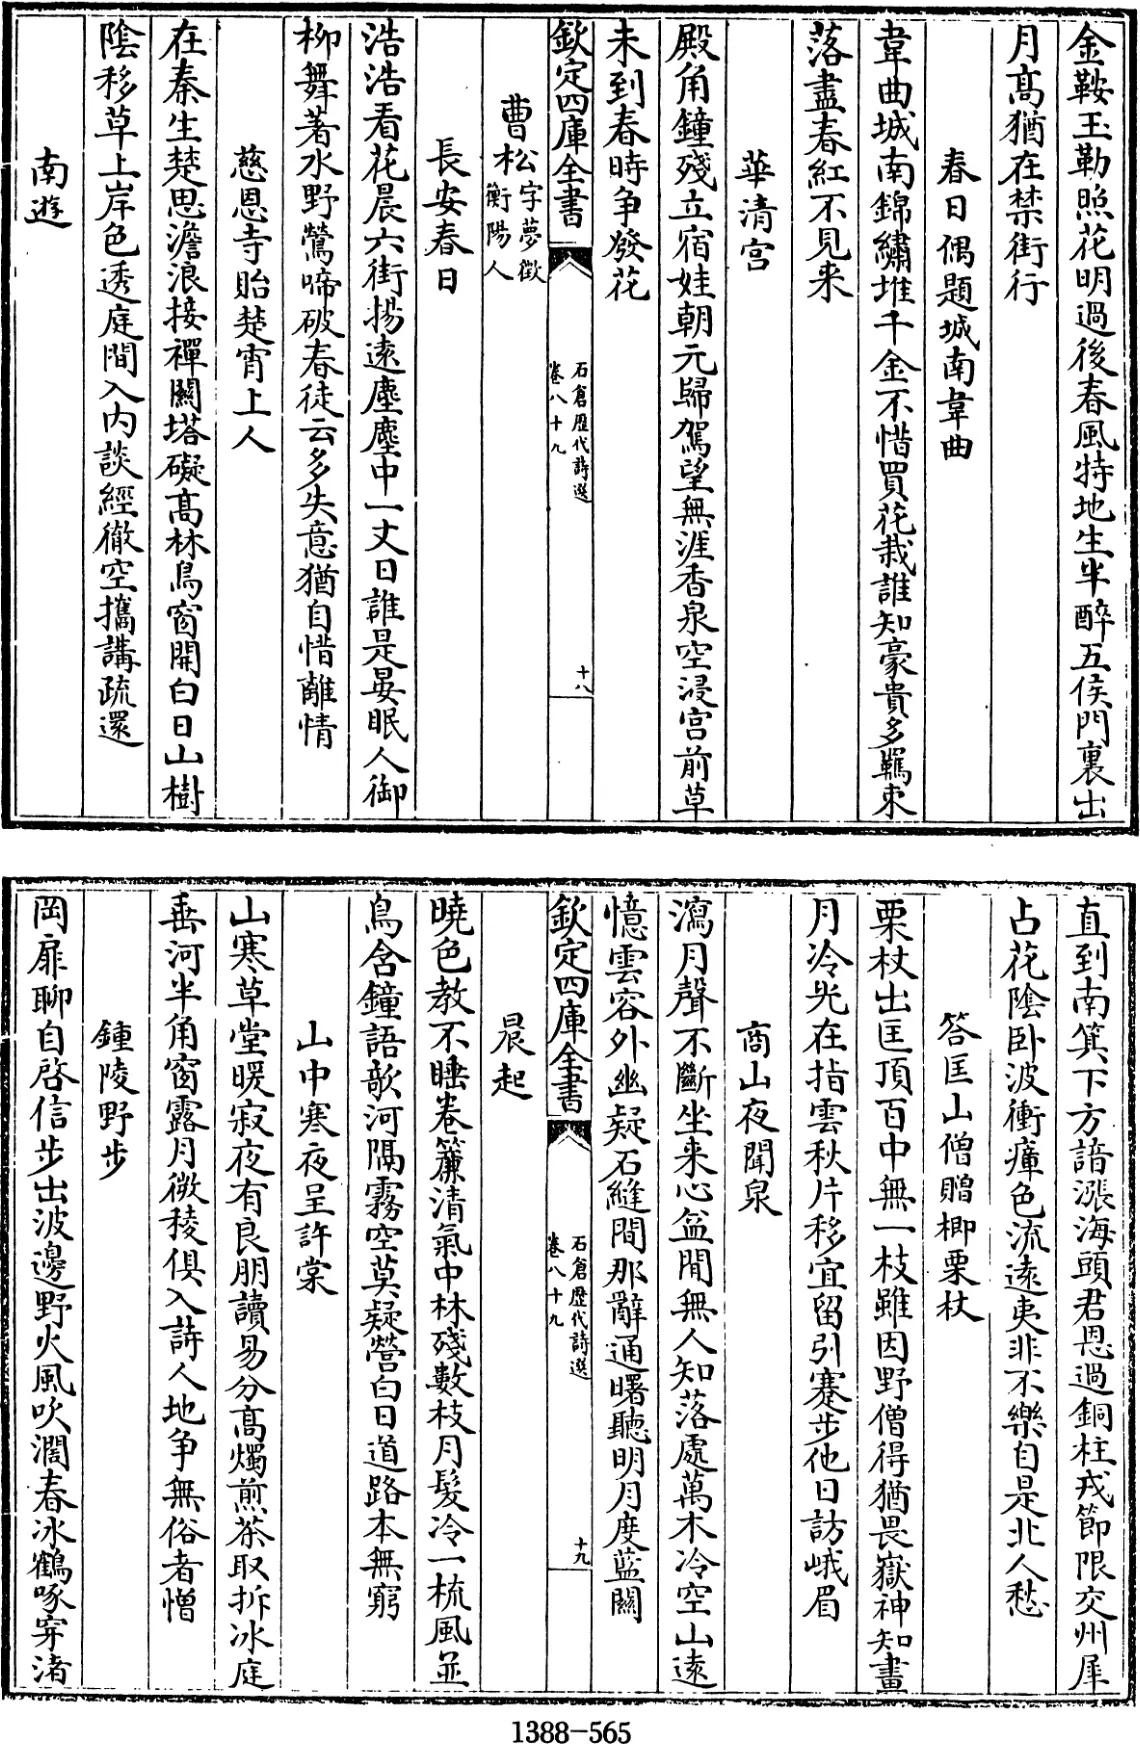 金鞍玉勒照花明過後春風特地生半醉五侯門裏出
月髙猶在禁街行
春日偶題城南韋曲
韋曲城南錦繡堆千金不惜買花栽誰知豪貴多羈束
落盡春紅不見来
華清宫
殿角鐘殘立宿娃朝元歸駕望無涯香泉空浸宫前草
未到春時争發花
欽定四庫全書
石倉歷代詩選
卷八十九
十八
曹松字夢徴
衡陽人
長安春日
浩浩看花晨六街揚逺塵塵中一丈日誰是晏眠人御
柳舞著水野鶯啼破春徒云多失意猶自惜離情
慈恩寺貽楚霄上人
在秦生楚思澹浪接禪關塔礙髙林鳥窗開白日山樹
陰移草上岸色透庭間入内談經徹空攜講疏還
南遊
直到南箕下方諳漲海頭君恩過銅柱戎節限交州犀
占花陰卧波衝瘴色流逺夷非不樂自是北人愁
答匡山僧贈楖栗杖
栗杖出匡頂百中無一枝雖因野僧得猶畏嶽神知畫
月冷光在指雲秋片移宜留引蹇步他日訪峨眉
商山夜聞泉
瀉月聲不斷坐来心益閒無人知落處萬木冷空山逺
憶雲容外幽疑石縫間那辭通曙聽明月度藍關
欽定四庫全書
石倉歷代詩選
卷八十九
十九
晨起
曉色教不睡卷簾清氣中林殘數枝月髪冷一梳風並
鳥含鐘語歌河隔霧空莫疑營白日道路本無窮
山中寒夜呈許棠
山寒草堂暖寂夜有良朋讀易分髙燭煎茶取拆冰庭
垂河半角窗露月微稜俱入詩人地争無俗者憎
鍾陵野步
岡扉聊自啓信步出波邊野火風吹濶春冰鶴啄穿渚
1388-565